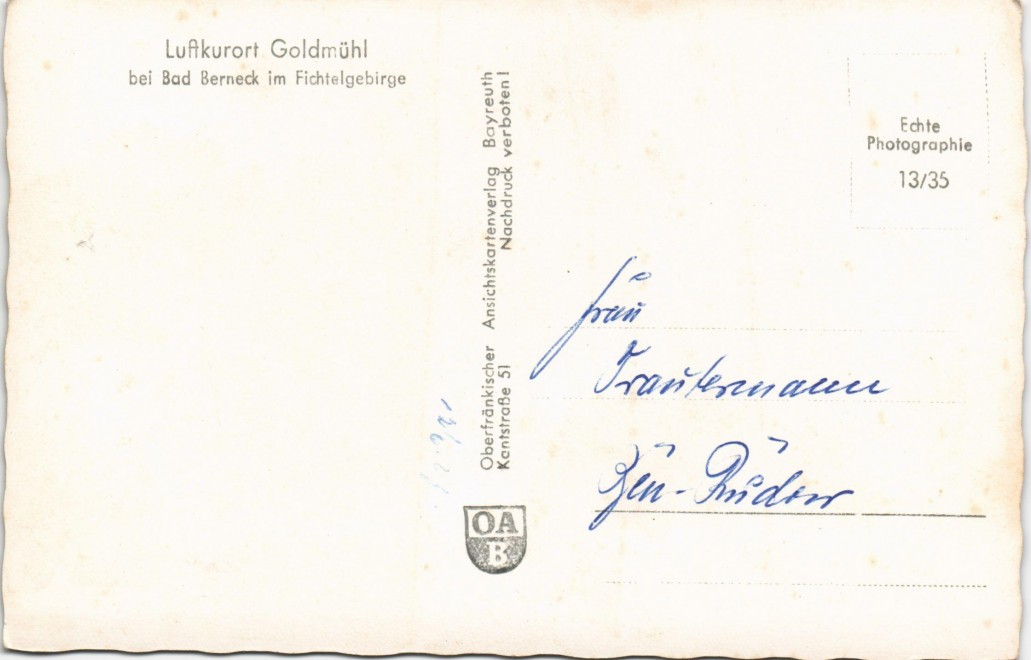 Luftkurort Goldmühl
bei Bad Berneck im Fichtelgebirge
Oberfränkischer Ansichtskartenverlag Bayreuth
Kantstraße 51 Nachdruck verboten!
OA
B
Echte
Photographie
13/35
Frau
Trautermann
Bln-Rudow